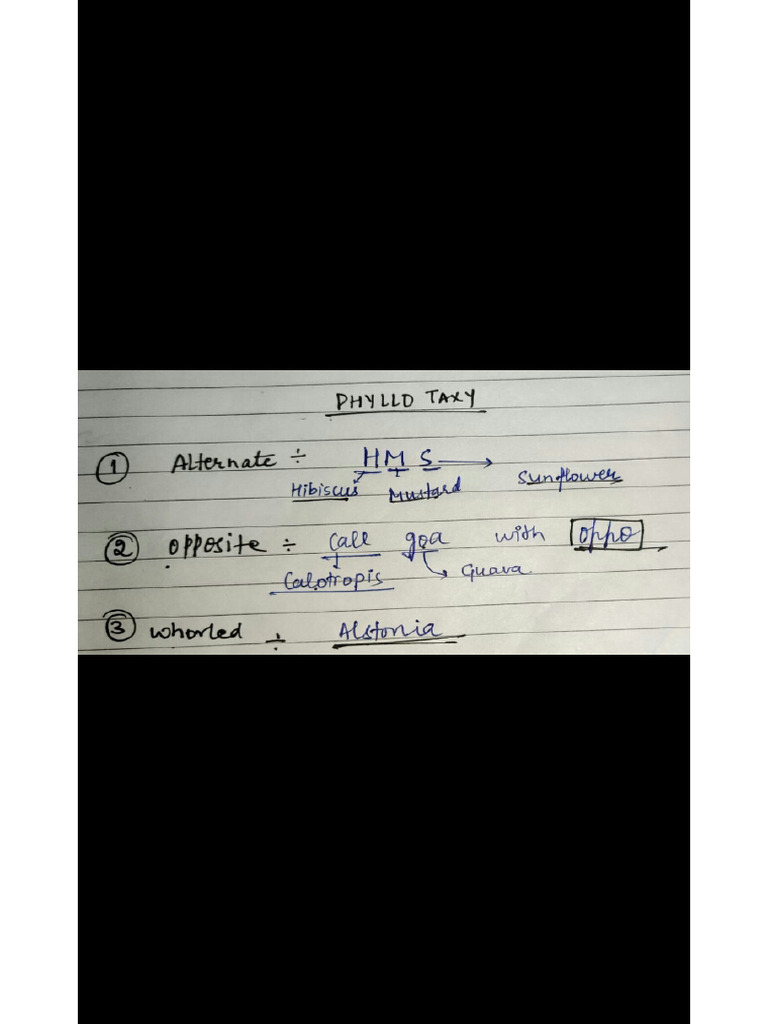 PHYLLO TAXY
① Alternate ÷ HMS → Sunflower
Hibiscus Mustard
② opposite ÷ Call goa with oppo
Calotropis Guava.
③ Whorled ÷ Alstonia